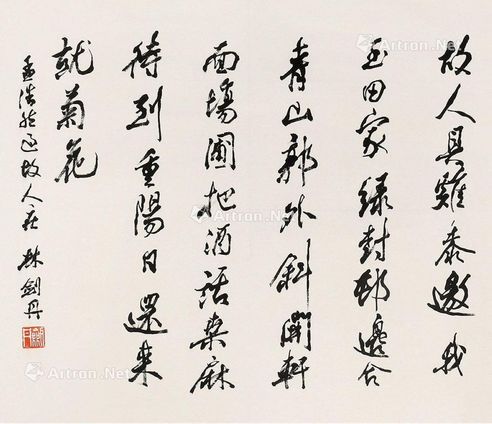 故人具雞黍邀我
至田家綠樹邨邊合
青山郭外斜開軒
面場圃把酒話桑麻
待到重陽日還來
就菊花
孟浩然過故人莊 林劍丹
Artron.Net
Artron.Net
Artron.Net
Artron.Net